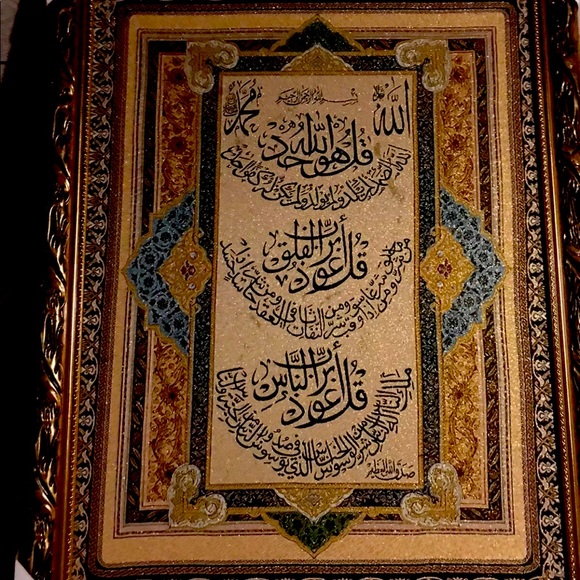 الله
بسم الله الرحمن الرحيم
محمد
قل هو الله احد
الله الصمد لم يلد ولم يولد ولم يكن له كفوا احد
قل أعوذ برب الفلق
من شر ما خلق ومن شر غاسق اذا وقب ومن شر النفاثات في العقد ومن شر حاسد اذا حسد
قل أعوذ برب الناس
ملك الناس اله الناس من شر الوسواس الخناس الذي يوسوس في صدور الناس من الجنة والناس
صدق الله العظيم